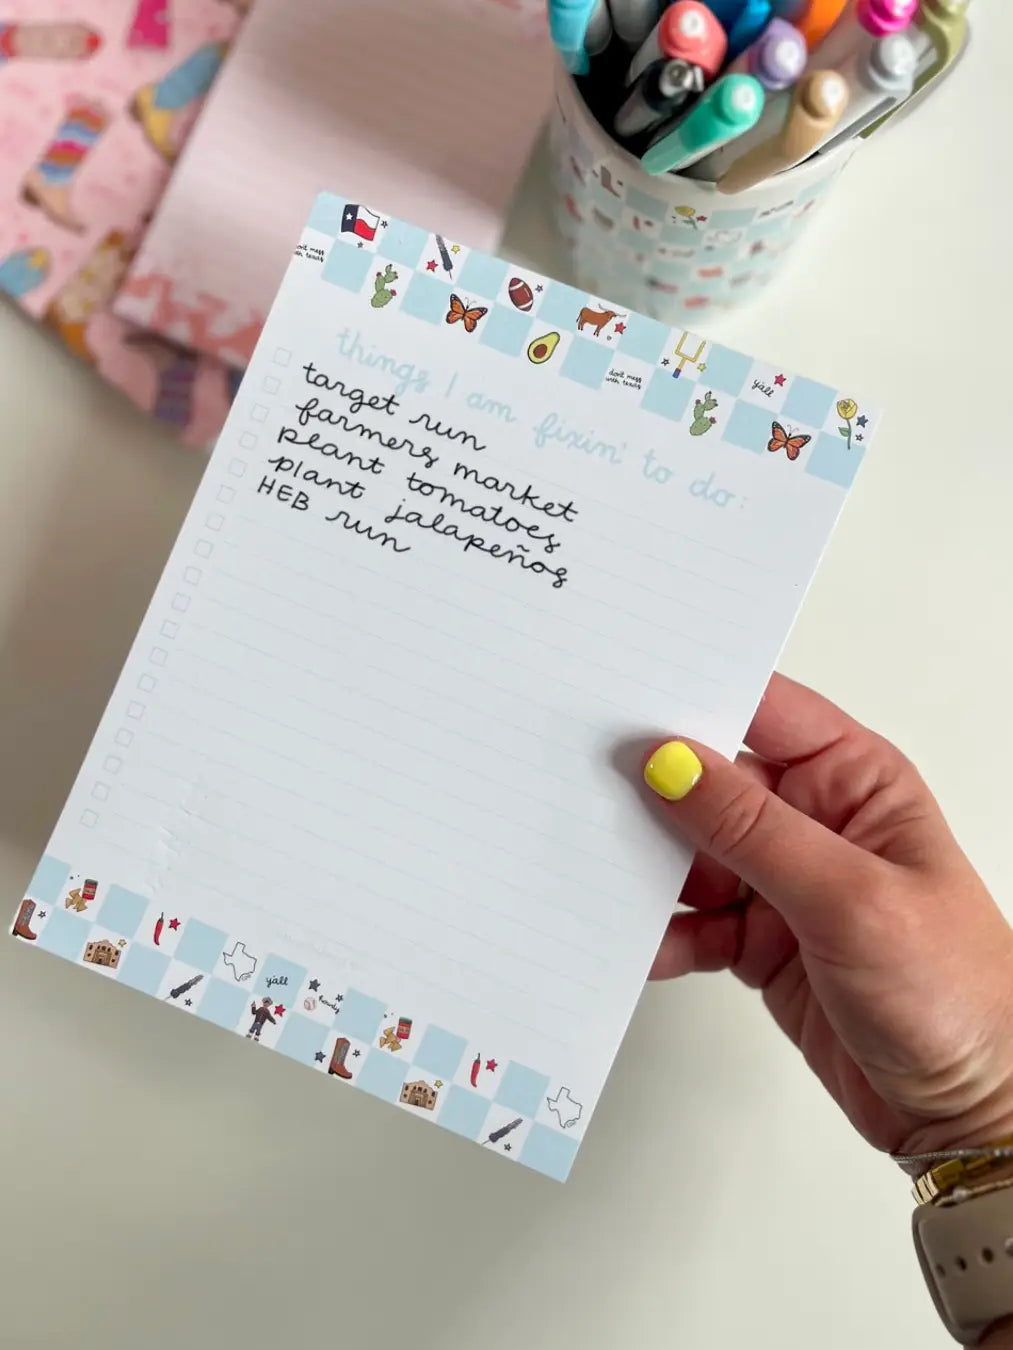 don't mess
with texas
don't mess
with texas
y'all
things I am fixin' to do:
target run
farmers market
plant tomatoes
plant jalapeños
HEB run
y'all
howdy